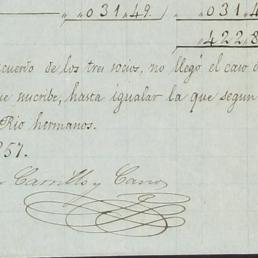 „ 031„49.  „ 031„4
„ 4228
cuerdo de los tres socios, no llegó el caso d
ue suscribe, hasta igualar la que segun
Rio hermanos.
857.
Carrillo y Cano